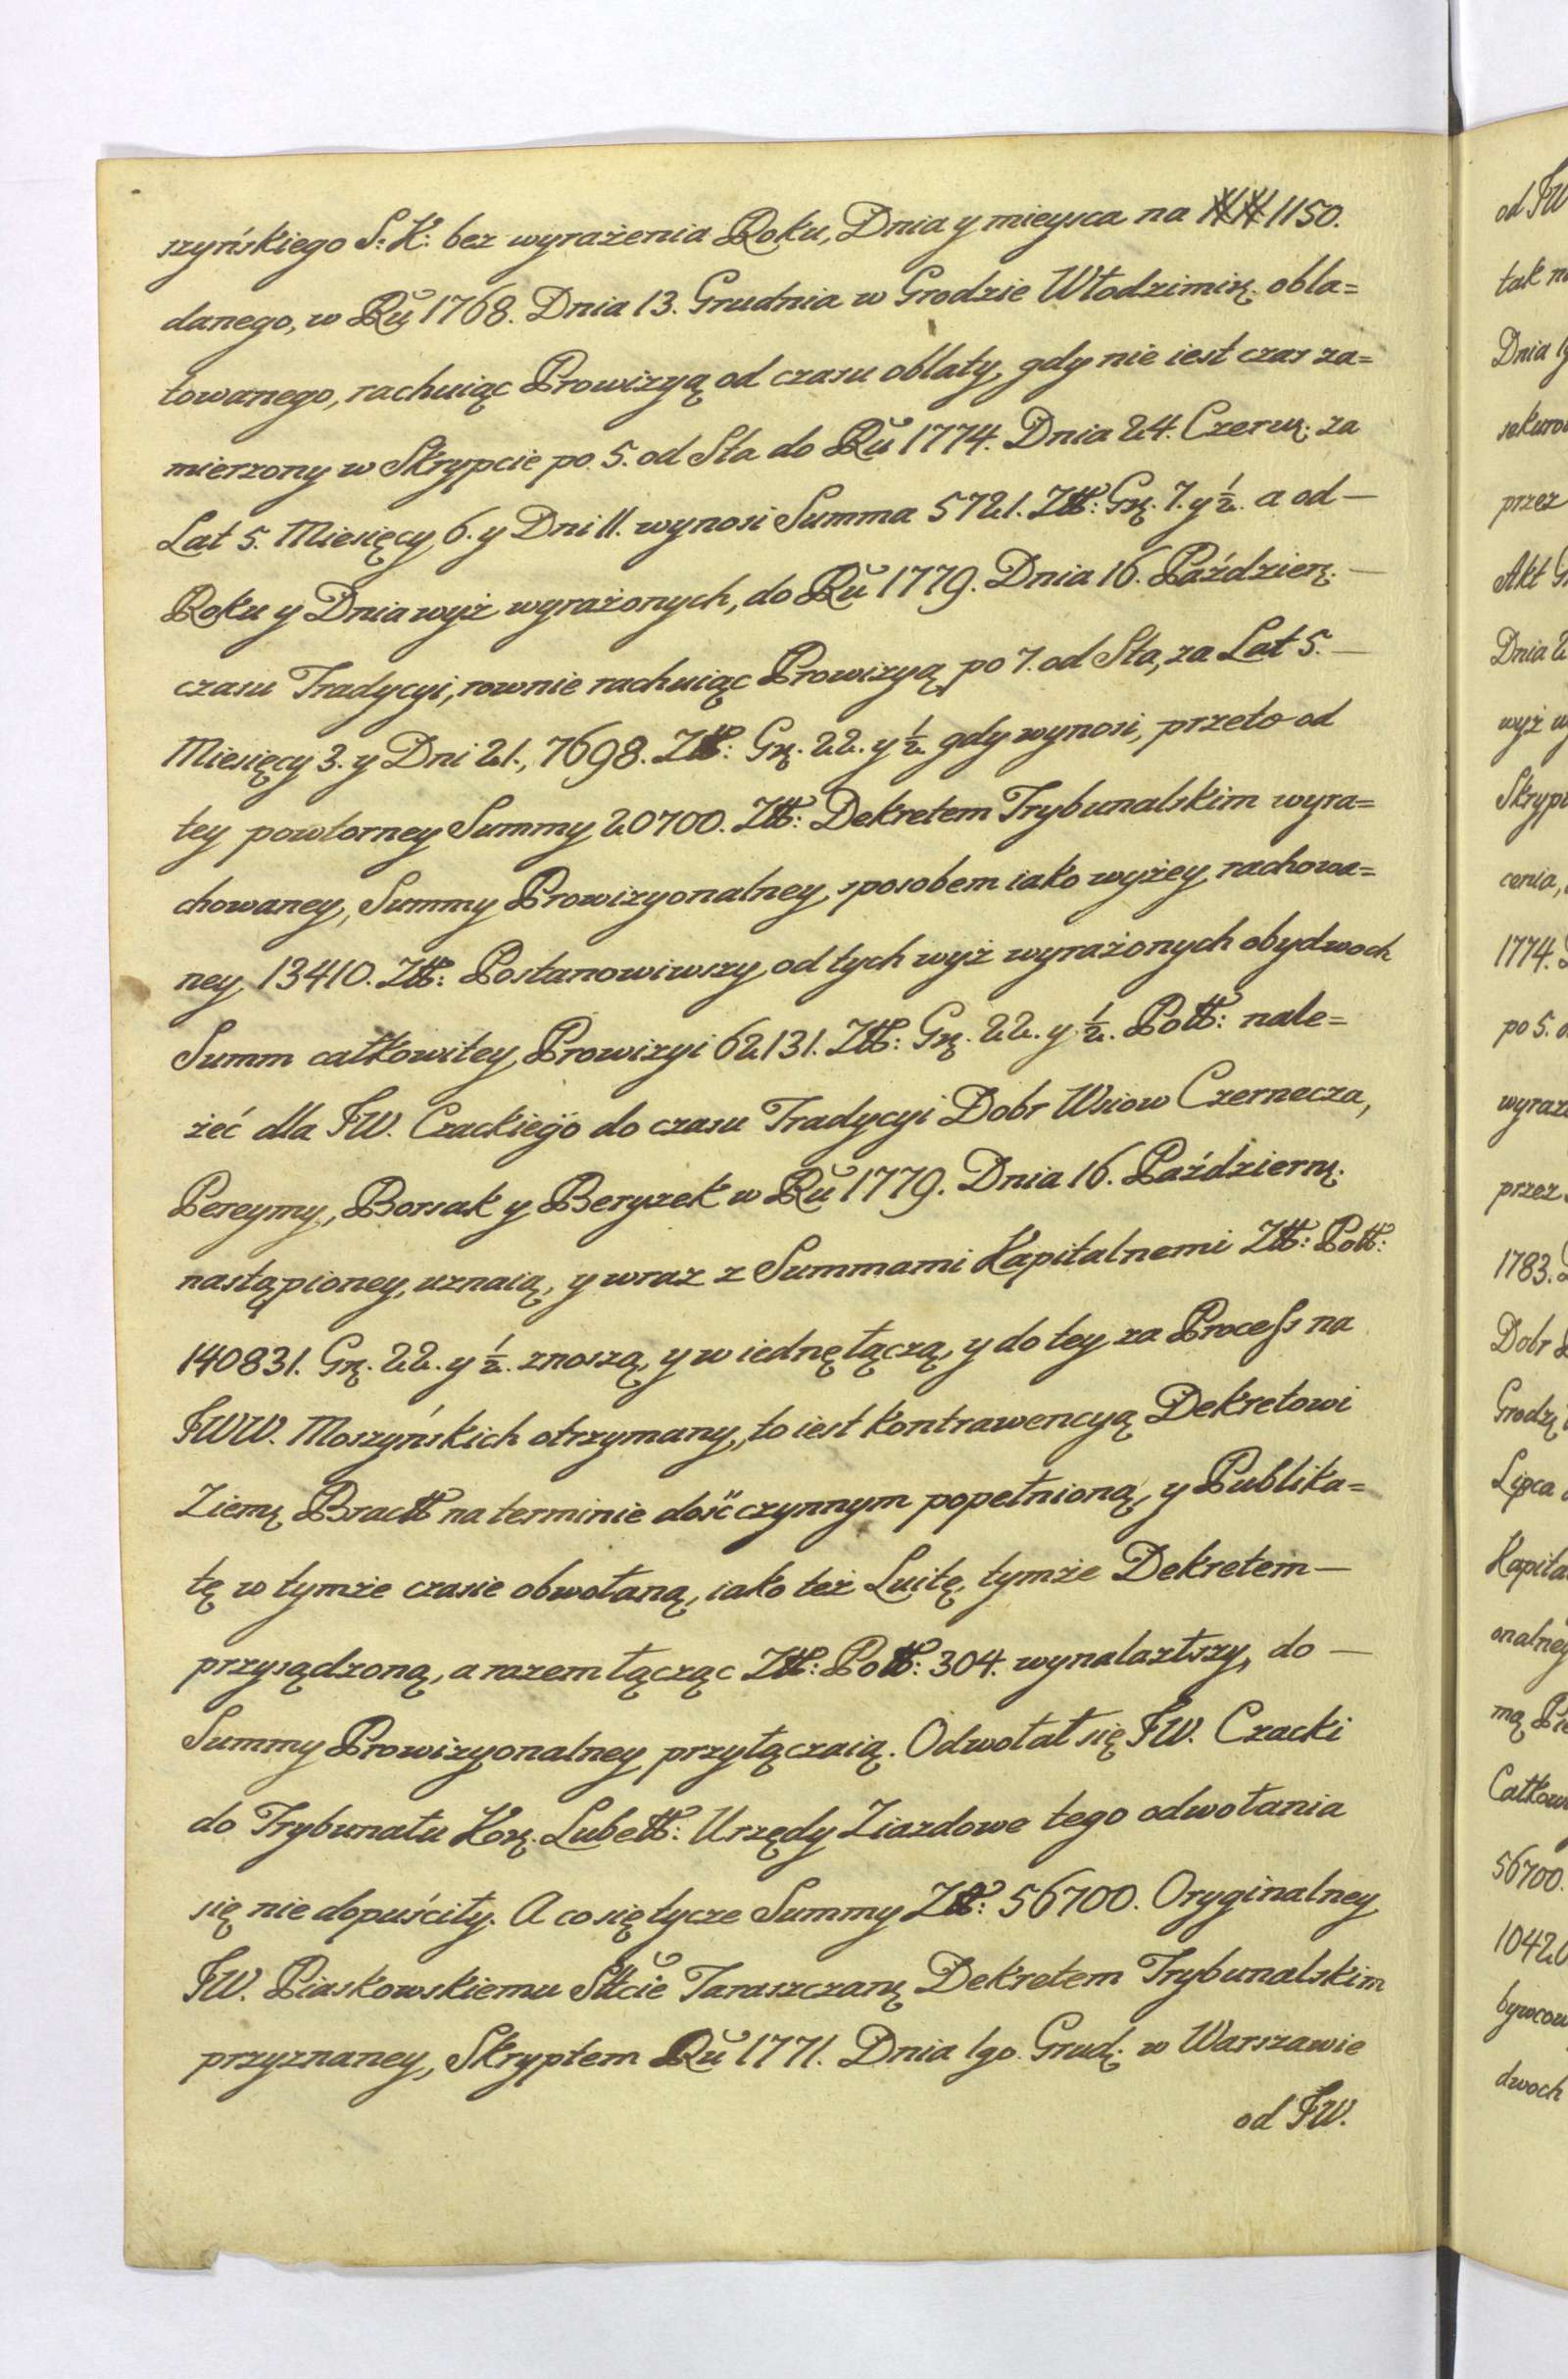 szyńskiego S: K: bez wyrażenia Roku, Dnia y mieysca na ## 1150.
danego, w Ru 1768. Dnia 13. Grudnia w Grodzie Włodzimirs. obla=
towanego, rachuiąc Prowizyą od czasu oblaty, gdy nie iest czas za=
mierzony w Skrypcie po 5. od Sta do Ru 1774. Dnia 24. Czerw. za
Lat 5. Miesięcy 6. y Dni 11. wynosi Summa 5721. Złł: Gr. 7. y ½. a od —
Roku y Dnia wyż wyrażonych, do Ru 1779. Dnia 16. Paździer. —
czasu Tradycyi, rownie rachuiąc Prowizyą po 7. od Sta, za Lat 5. —
Miesięcy 3. y Dni 21., 7698. Złł: Gr. 22. y ½ gdy wynosi, przeto od
tey powtorney Summy 20700. Złł: Dekretem Trybunalskim wyra=
chowaney, Summy Prowizyonalney, sposobem iako wyżey rachowa=
ney 13410. Złł: Postanowiwszy, od tych wyż wyrażonych obydwoch
Summ całkowitey Prowizyi 62131. Złł: Gr. 22. y ½. Polł: nale=
żeć dla JW. Czackiego do czasu Tradycyi Dobr Wsiow Czernacza,
Pereymy, Borsak y Beryzek w Ru 1779. Dnia 16. Październ.
nastąpioney, uznaią, y wraz z Summami Kapitalnemi Złł: Polł:
140831. Gr. 22. y ½. znoszą, y w iednę łączą, y do tey za Process na
JWW. Moszyńskich otrzymany, to iest kontrawencyą Dekretowi
Ziem. Bracł na terminie dość czynnym popełnioną, y Publika=
tę w tymże czasie obwołaną, iako też Luitę, tymże Dekretem —
przysądzoną, a razem łącząc Złł: Polł: 304. wynalazłszy, do —
Summy Prowizyonalney przyłączaią. Odwołał się JW. Czacki
do Trybunału Kor. Lubelł: Urzędy Ziazdowe tego odwołania
się nie dopuściły. A co się tycze Summy Złł: 56700. Oryginalney
JW. Piaskowskiemu Stłcie Taraszczans Dekretem Trybunalskim
przyznaney, Skryptem Ru 1771. Dnia 1go. Grud. w Warszawie
od JW.
od JW
tak
Dnia
przez
Akt
Dnia 2
wyż
Skryp
cenia,
1774.
po 5.
wyraż
przez
1783.
Dobr
Grodz
Lipca
Kapita
onalney
mą
Całkow
56700.
1042
bywcow
dwoch